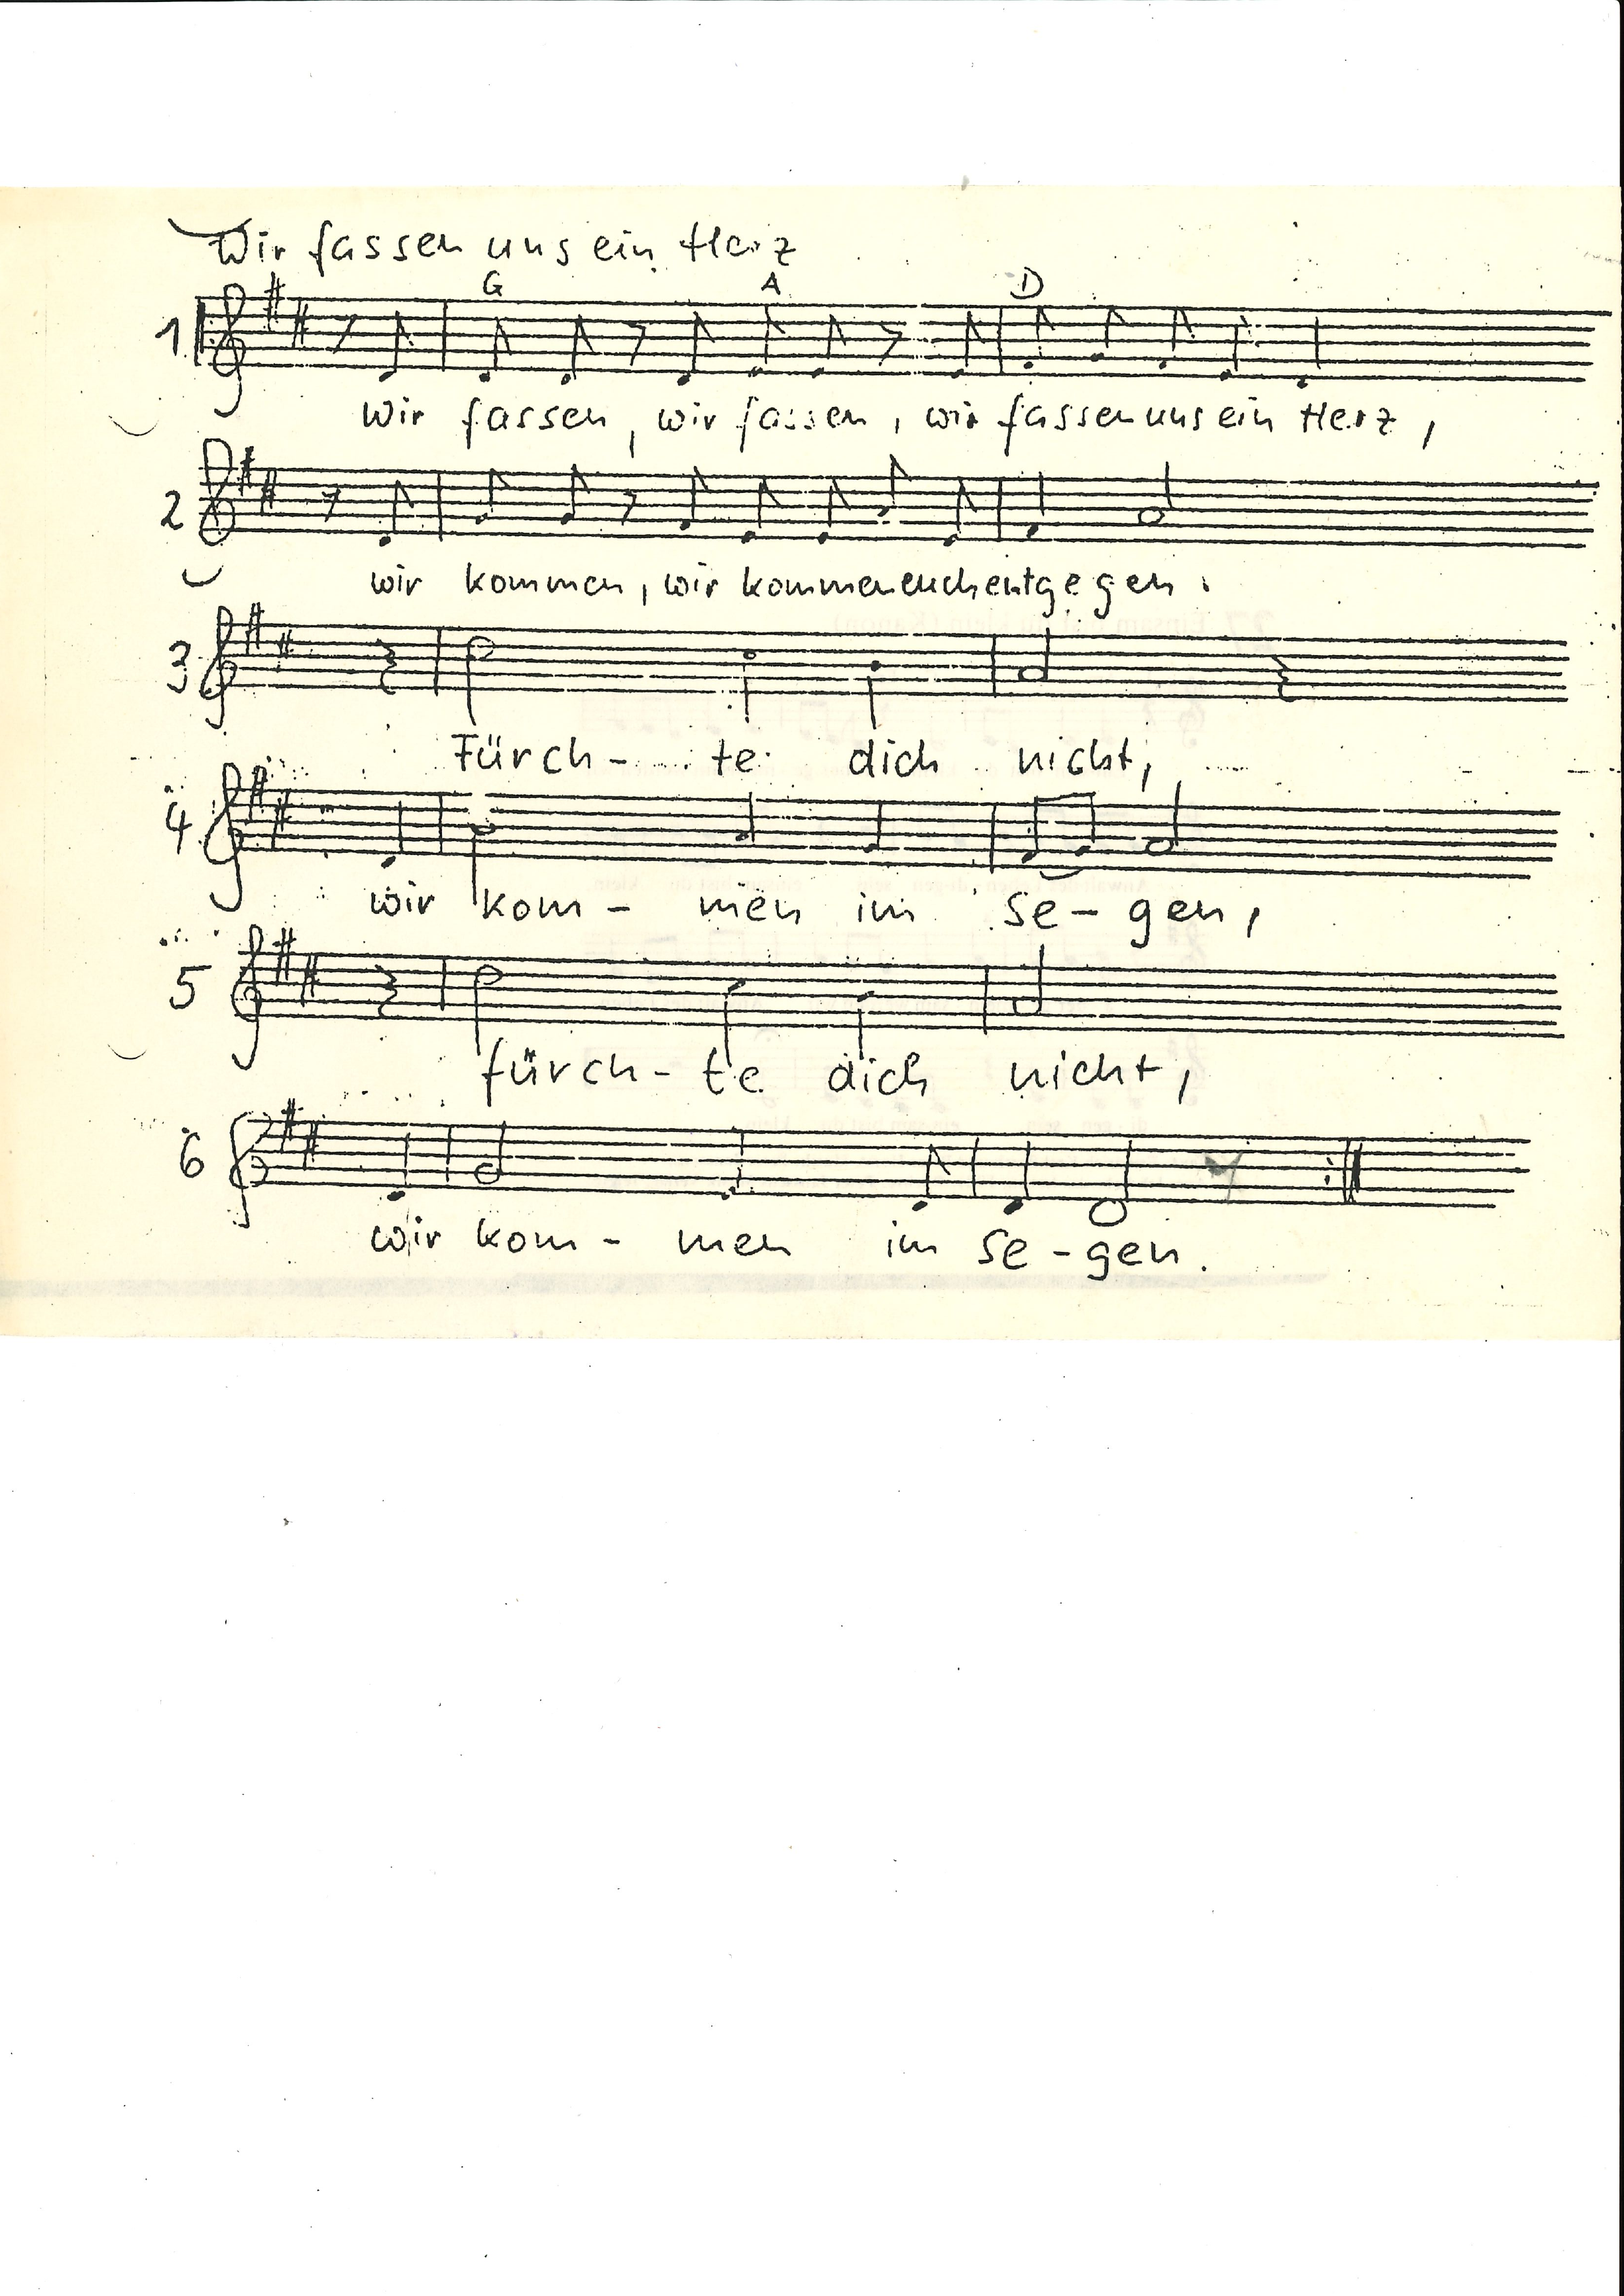 Wir fassen uns ein Herz
G A D
1.
Wir fassen, wir fassen, wir fassen uns ein Herz,
2
wir kommen, wir kommen euch entgegen.
3
Fürch- te dich nicht,
4
wir kom- men im Se- gen,
5
fürch- te dich nicht,
6
wir kom- men im Se- gen.